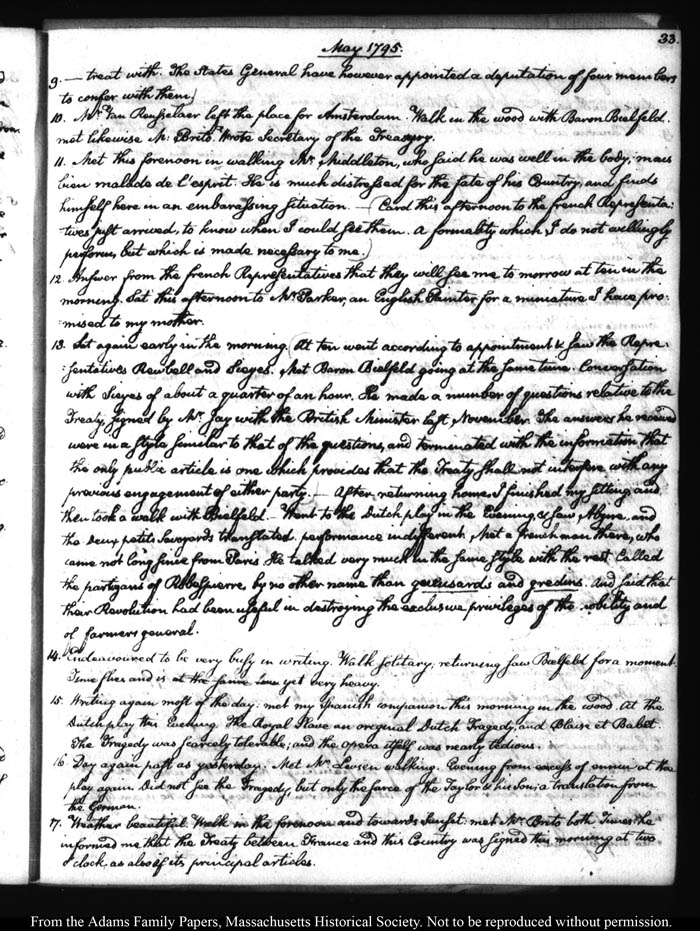 33.
May 1795.
9. — treat with. The States General have however appointed a deputation of four members
to confer with them)
10. Mr. Van Rensselaer left the place for Amsterdam. Walk in the wood with Baron Bielfeld.
met likewise Mr. Brito. Wrote Secretary of the Treasury.
11. Met this forenoon in walking Mr. Middleton, who said he was well in the body; mais
bien malade de l'esprit. He is much distressed for the fate of his Country, and finds
himself here in an embarassing situation. — Card this afternoon to the french Representa:
tives just arrived, to know when I could see them. a formality which I do not willingly
perform, but which is made necessary to me.)
12. Answer from the french Representatives that they will see me to morrow at ten in the
morning. Sat this afternoon to Mr. Parker, an English Painter for a miniature I have pro:
:mised to my mother.
13. Sat again early in the morning. (At ten went according to appointment & saw the Repre:
:sentatives Rewbell and Sieyes. Met Baron Bielfeld going at the same time. Conversation
with Sieyes of about a quarter of an hour. He made a number of questions relative to the
Treaty signed by Mr. Jay with the British Minister last November. The answers he received
were in a style similar to that of the questions, and terminated with the information that
the only public article is one which provides that the Treaty shall not interfere with any
previous engagement of either party.) — After returning home I finished my sitting and
then took a walk with Bielfeld. — Went to the Dutch play in the Evening, & saw Alzire, and
the deux petits Savoyards translated. performance indifferent. Met a french man there, who
came not long since from Paris. He talked very much in the same style with the rest. Called
the partizans of Robespierre, by no other name than gueusards and gredins. And said that
their Revolution had been useful in destroying the exclusive privileges of the nobility and
of farmers general.
14. Endeavoured to be very busy in writing. Walk solitary, returning saw Bielfeld for a moment.
Time flies and is at the same time yet very heavy.
15. Writing again most of the day. met my Spanish companion this morning in the wood. At the
Dutch play this Evening. The Royal Slave an original Dutch Tragedy, and Blaise et Babet.
The Tragedy was scarcely tolerable; and the opera itself was nearly tedious.
16. Day again past as yesterday. Met Mr. walking. Evening from excess of ennui at the
play again. Did not see the Tragedy, but only the farce of the Taylor & his Son; a translation from
the German.
17. Weather beautiful. Walk in the forenoon and towards Sunset. met Mr. Brito both Times. he
informed me that the Treaty between France and this Country was signed this morning at two
o'clock, as also of its principal articles.
From the Adams Family Papers, Massachusetts Historical Society. Not to be reproduced without permission.